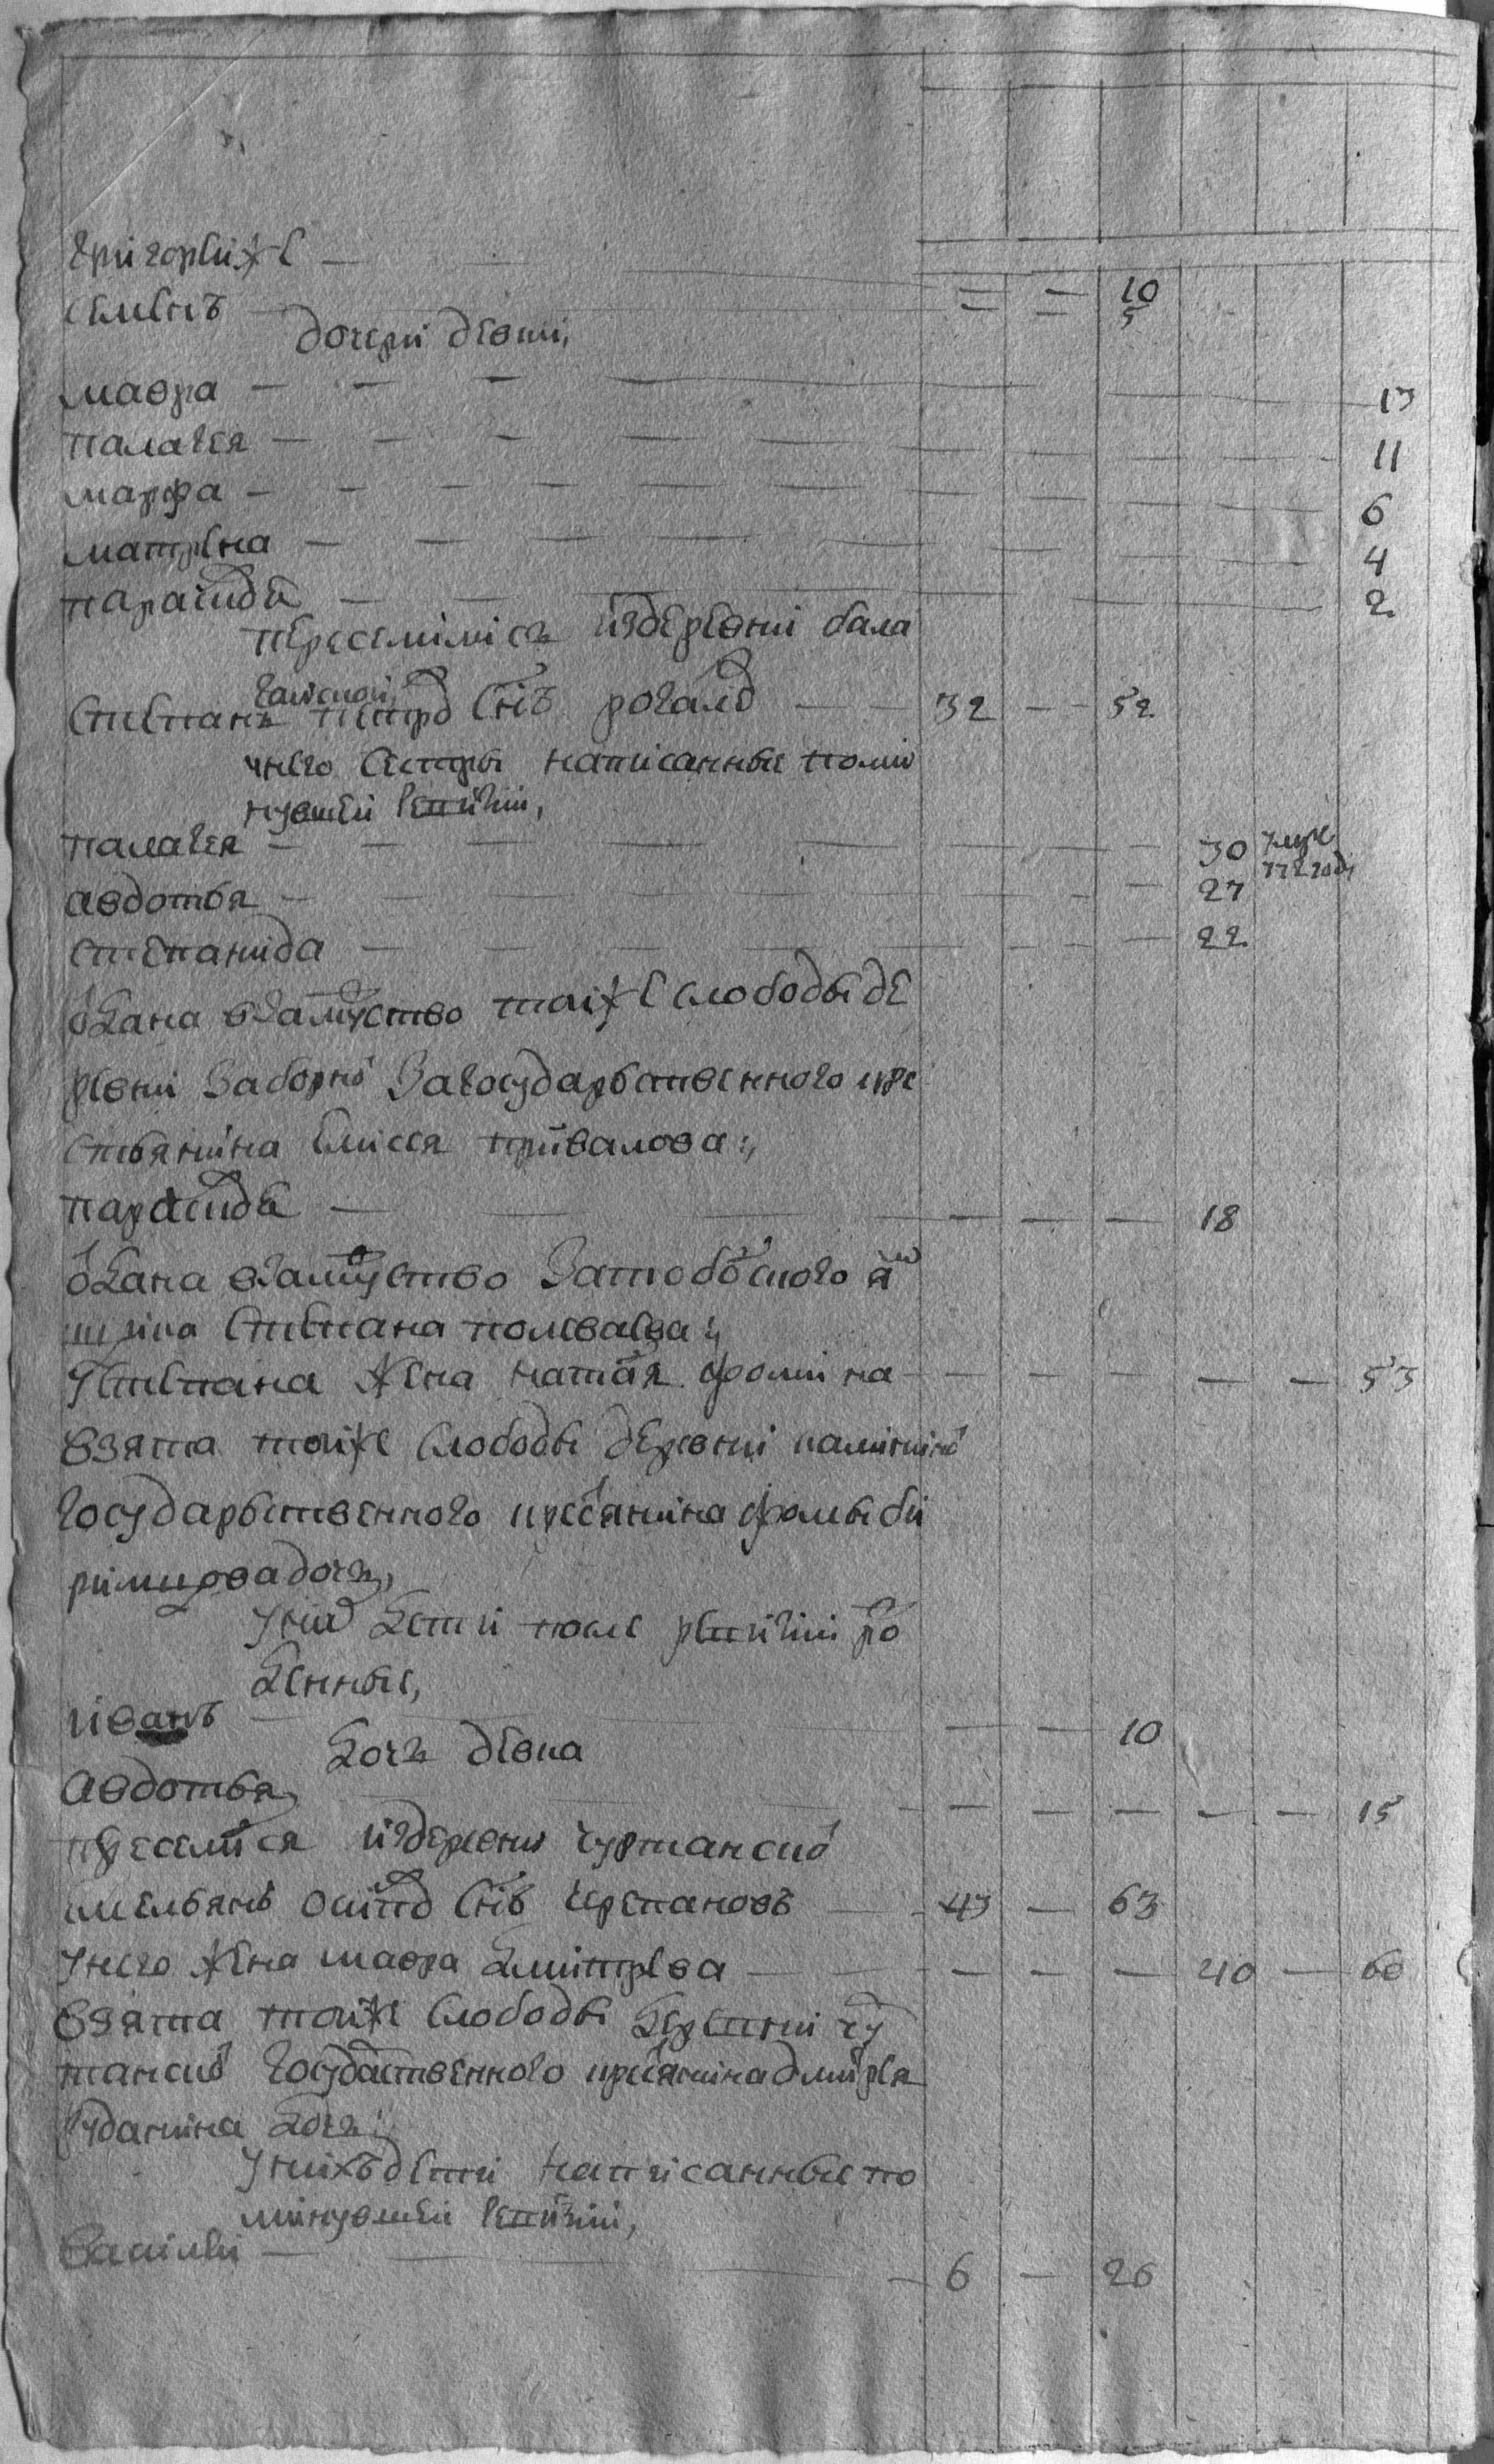 григорей же —
семенъ — = = 10 5
дочери девки,
мавра — 13
палагея — 11
марфа — 6
матрена — 4
парасковя — 2
переселились издеревни бала
галиской
степанъ петровъ снъ рогалев — 32 — 52
унего сестры написанные помин
нувшей ревизии,
палагея — 30 умре 772 году
авдотья — 27
степанида — 22
отдана взамуство тойже слободы де
ревни заборной загосударьственного кре
стьянина елисея привалова:,
парасковя — 18
отдана взамуство затобольского ям
щика степана полеваева:,
устепана жена наталя фомина — 53
взята тойже слободы деревни калинино
государьственного кресянина фомы би
рюкова дочь,
уних дети после ревизии ро
жденные,
иванъ — 10
дочь девка
авдотья, — 15
преселился издеревни чуртанской
емельянъ осиповъ снъ черепановъ — 43 — 63
унего жена мавра дмитрева — 40 — 60
взята тойже слободы деревни чур
танской государственного кресянина дмитрея
рудакина дочь:,
унихъ дети написанные по
минувшей ревизии,
василей — 6 — 26